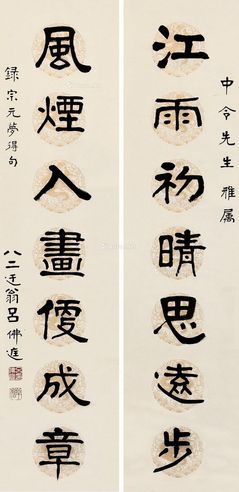 中令先生雅属
江雨初晴思遠步
風煙入畫便成章
錄宗元夢得句
八二迂翁呂佛庭